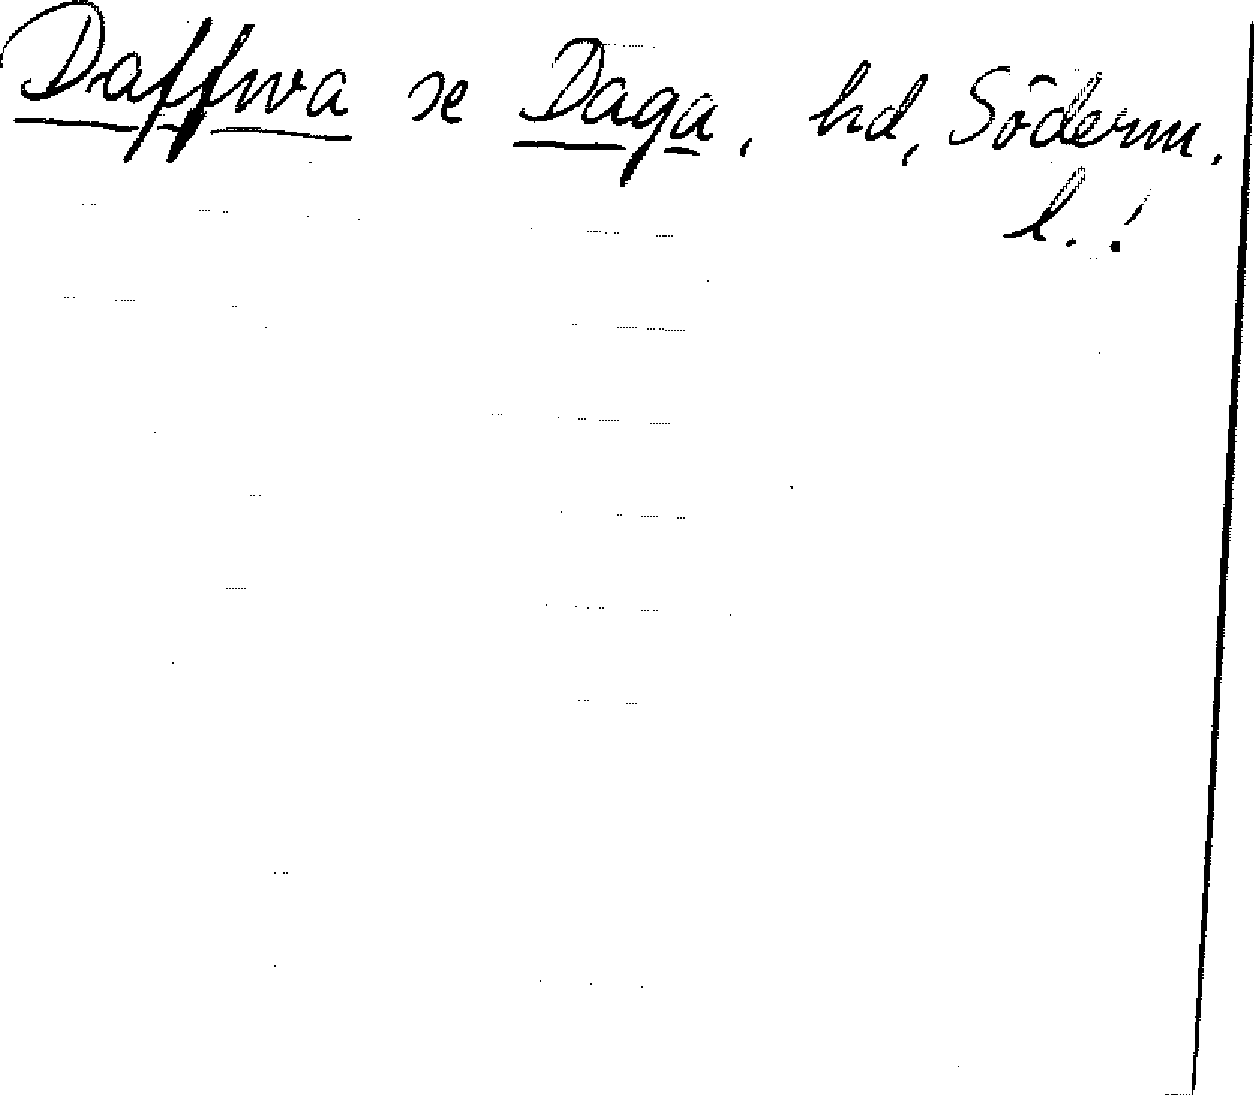 Daffwa se Daga, hd, Söderm.
l.!